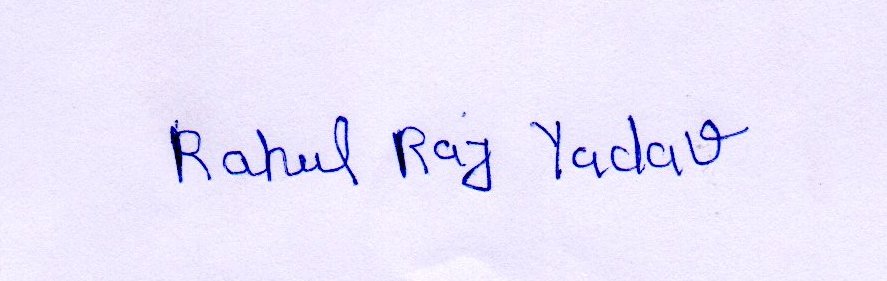 Rahul Raj Yadav